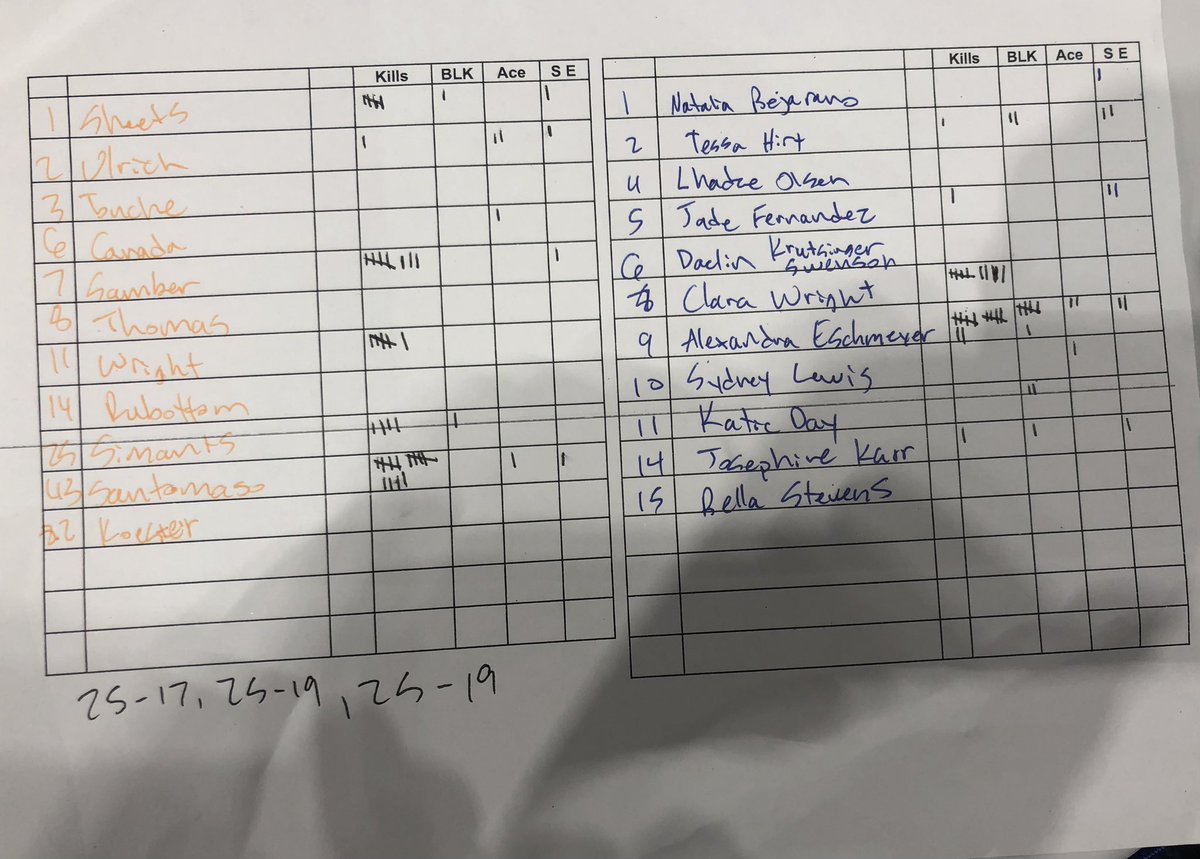 Kills BLK Ace S E
1 Sheets
2 Ulrich
3 Touche
6 Canada
7 Samber
8 Thomas
11 Wright
14 Rubottom
25 Simants
43 Santomaso
32 Koerter
25-17, 25-19, 25-19
Kills BLK Ace S E
1 Natalia Bejarano
2 Tessa Hirt
4 Lhadze Olsen
5 Jade Fernandez
6 Daelin Krutsinger
Swenson
8 Clara Wright
9 Alexandra Eschmeyer
10 Sydney Lewis
11 Katie Day
14 Josephine Karr
15 Bella Stevens